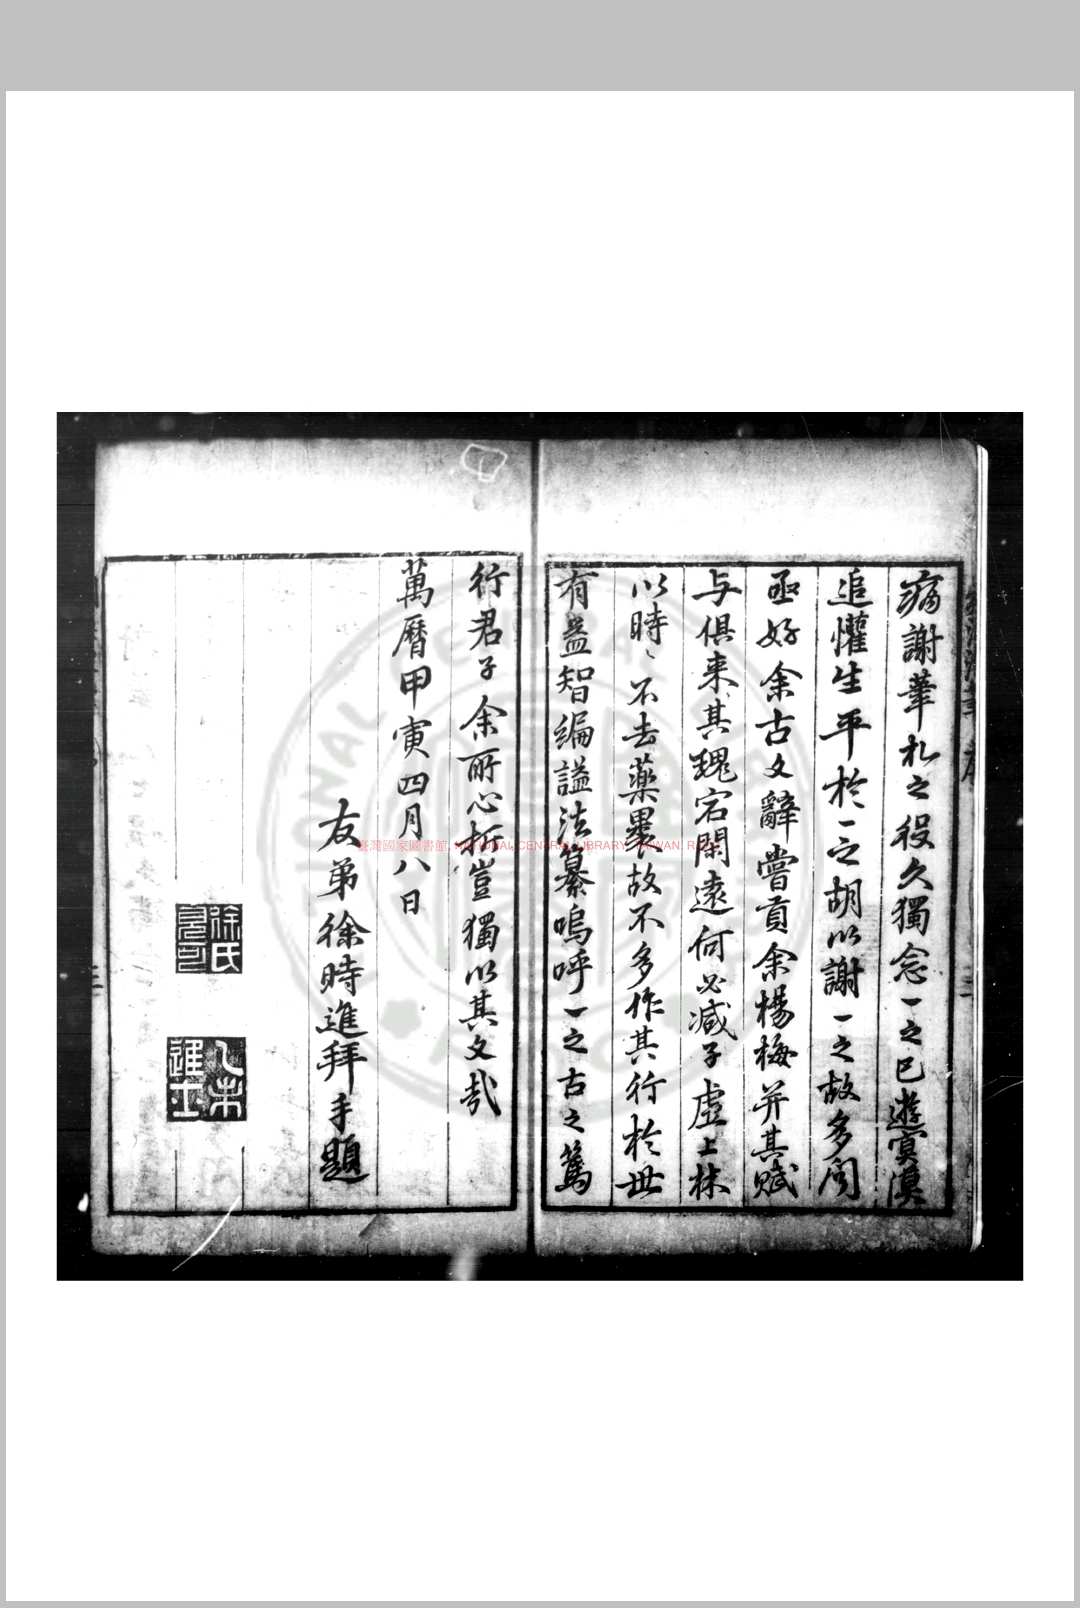 病謝華札之役久獨念一之已遊寞漠
追懽生平於一之胡以謝一之故多聞
亟好余古文辭嘗貢余楊梅并其賦
与俱来其瑰宕閎遠何必減子虛上林
以時〻不去藥裹故不多作其行於世
有益智編謚法纂嗚呼一之古之篤
行君子余所心折豈獨以其文哉
萬曆甲寅四月八日
友弟徐時進拜手題
徐氏
乙未進士
臺灣國家圖書館, NATIONAL CENTRAL LIBRARY, TAIWAN, R.O.C